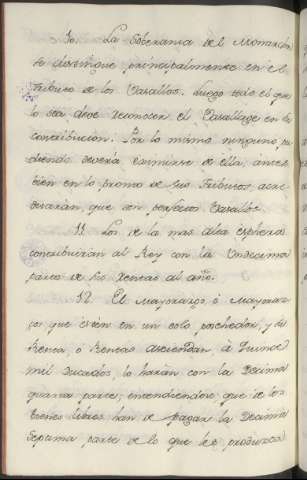 10. La Soberania del Monarca
se distingue principalmente en el
Tributo de los Vasallos, luego todo el que
lo sea debe reconocer el Vasallage en la
contribucion. Por lo mismo ninguno, pu
diendo deverá eximirse de ella, antes
bien en lo pronto de sus Tributos acre
ditarán, que son perfectos Vasallos.
11. Los de la mas alta esphera
contribuirán al Rey con la Undecima
parte de sus Rentas al año.
12. El Mayorazgo ó Mayoraz
gos que estén en un solo poseedor, y su
Renta, ó Rentas asciendan, á Quince
mil Ducados, lo harán con la Decima
quarta parte, entendiendose que de los
bienes libres han de pagar la Decima
Septima parte de lo que les produzcan